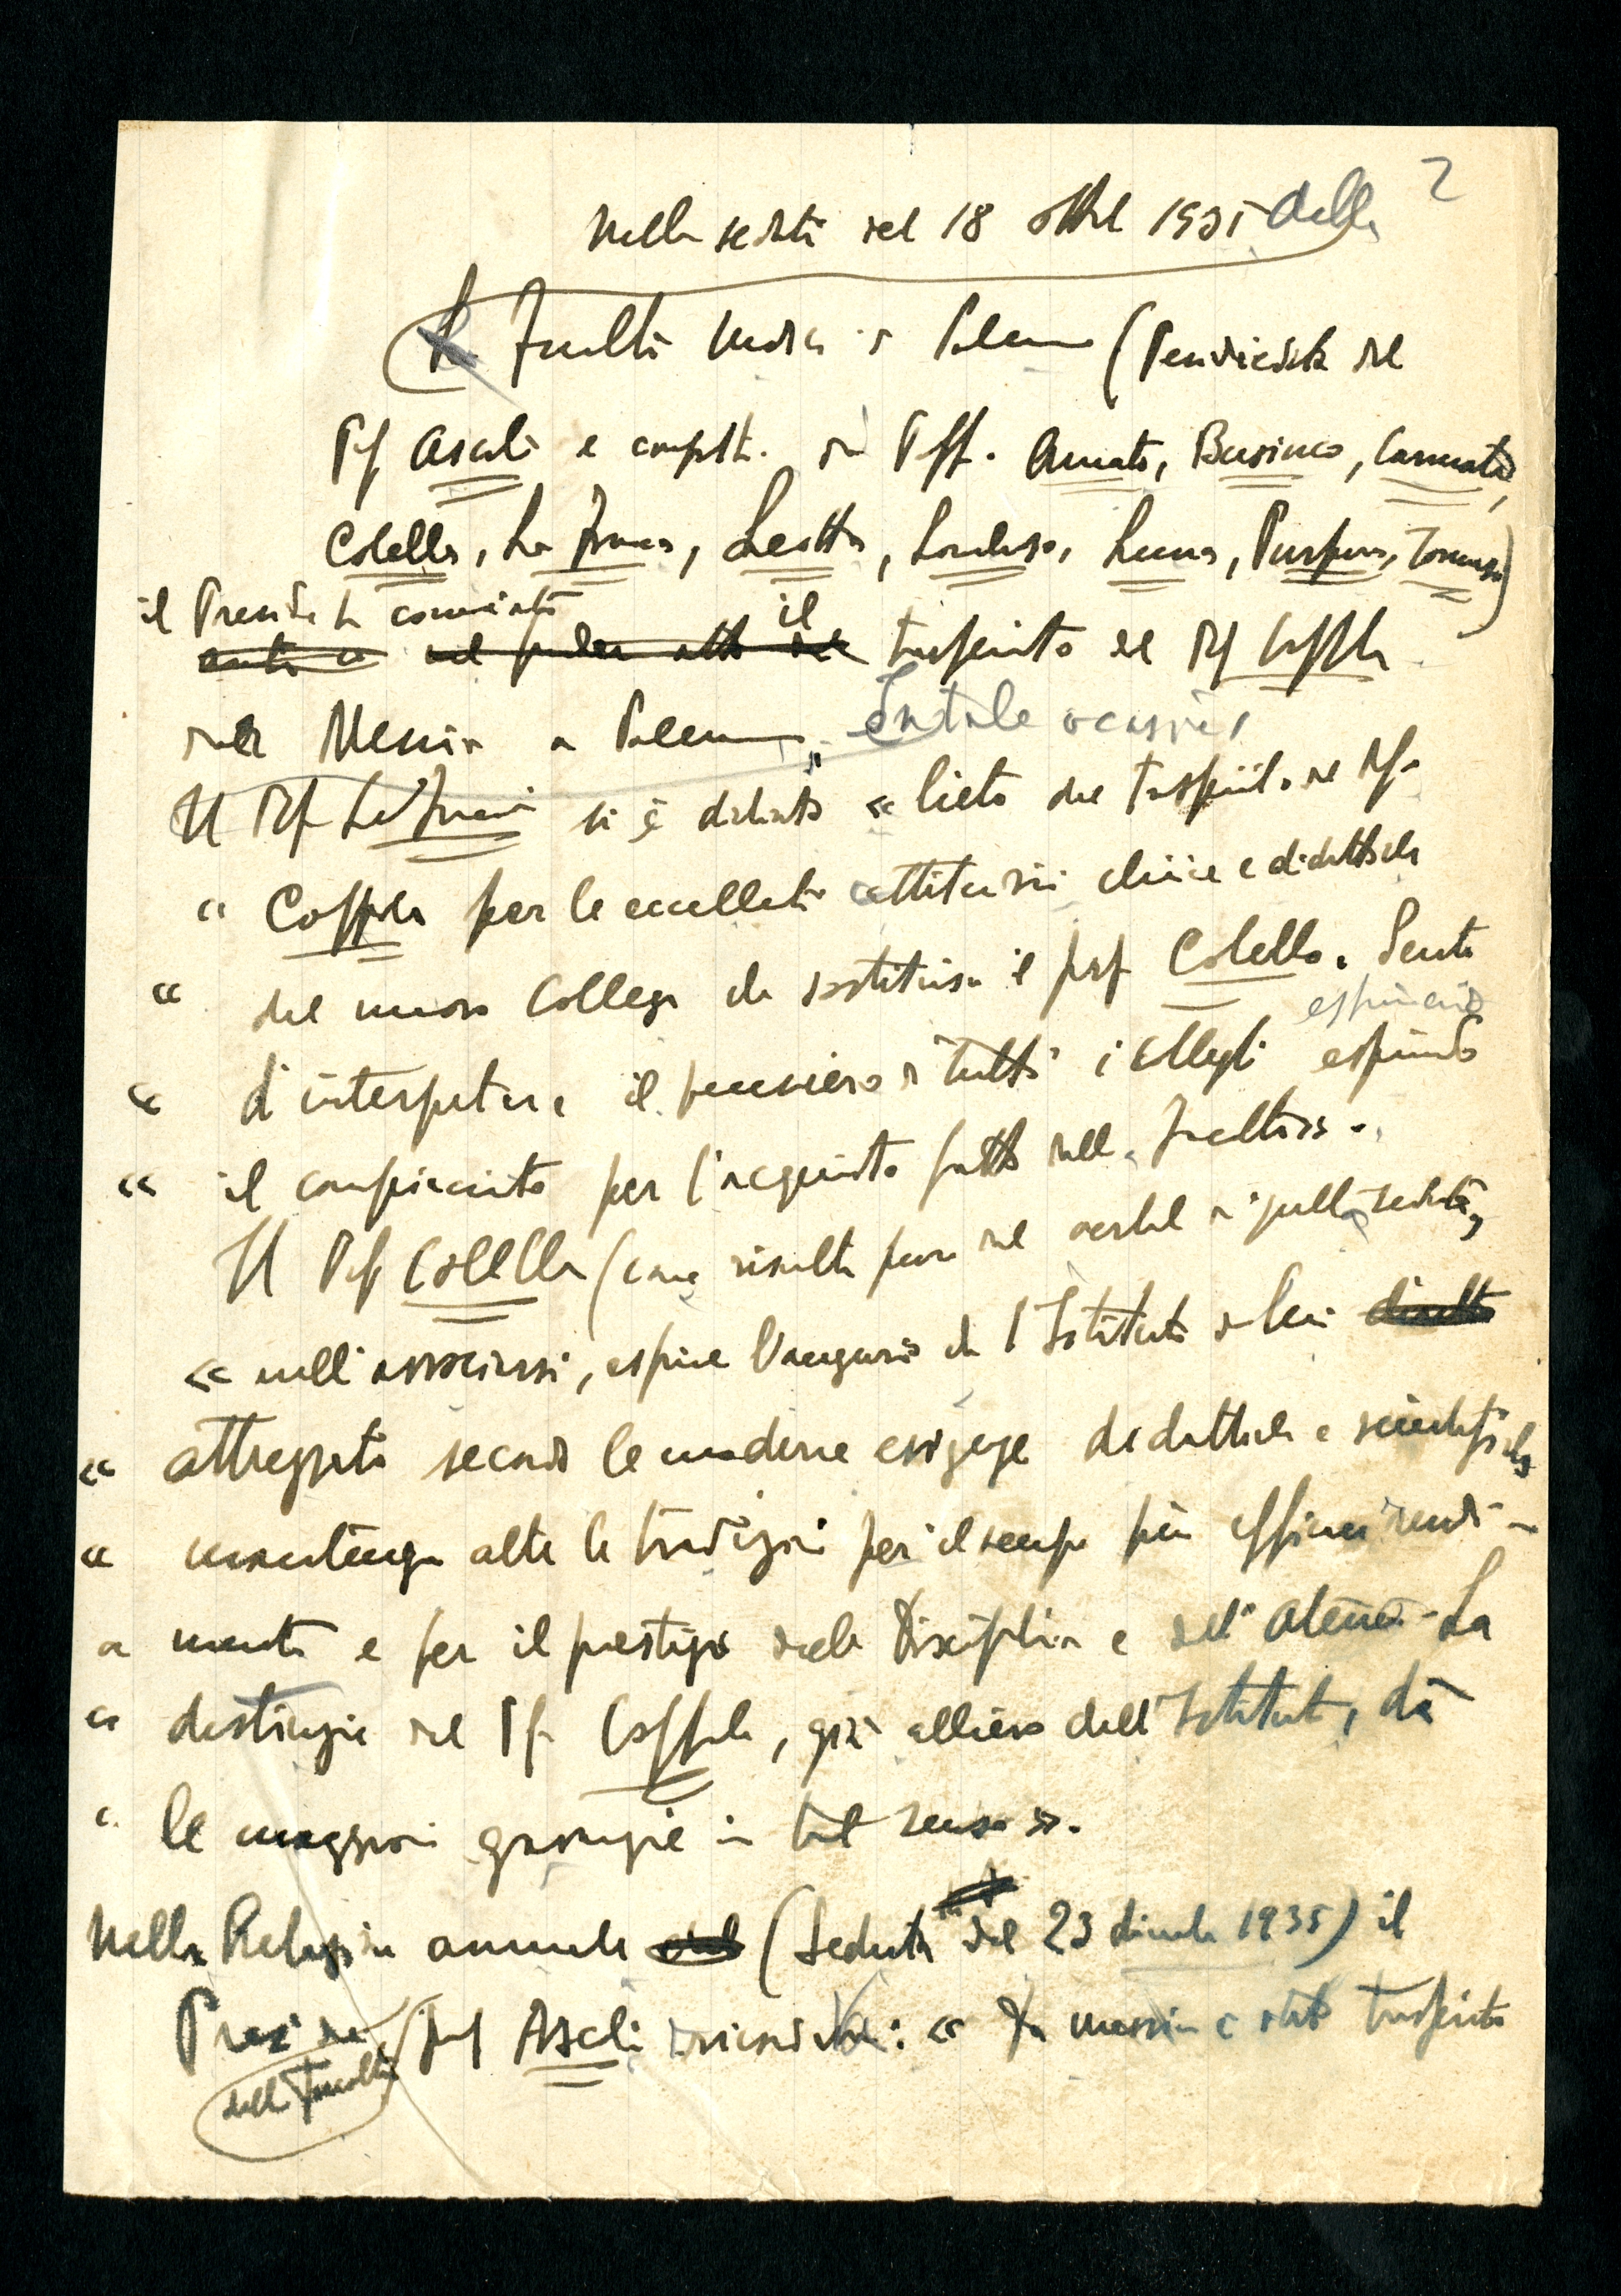 2
Nella seduta del 18 1935 della
Facoltà (Presidenza del
Prof Ascoli e dei Proff. Amato, Businco, Cannata,
Colella, La Franca, Leotta, Lombroso, Luna, Purpura, Tomaselli)
il Preside ha comunicato
il
trasferimento del Prof Coppola
da Messina a Palermo. In tale occasione
Il Prof La Franca si è dichiarato « lieto del trasferimento del Prof.
« Coppola per le eccellenti attitudini cliniche e didattiche
« del nuovo Collega che sostituisce il prof Colella. Sente
esprimendo
« d'interpretare il pensiero di tutti i colleghi esprimendo
« il compiacimento per l'acquisto fatto dalla Facoltà».
Il Prof Colella (come risulta pure nel verbale di quella seduta,
« nell'associarsi, esprime l'augurio che l'Istituto da lui
« attrezzato secondo le moderne esigenze didattiche e scientifiche
« mantenga alte le tradizioni per il sempre più efficace rendi-
« mento e per il prestigio della Disciplina e dell'Ateneo. La
« destinazione del Prof Coppola, già allievo dell'Istituto, dà
« le maggiori garanzie in tal senso ».
Nella Relazione annuale (Seduta del 23 dicembre 1935) il
Preside prof Ascoli : « Da Messina è stato trasferito
della Facoltà